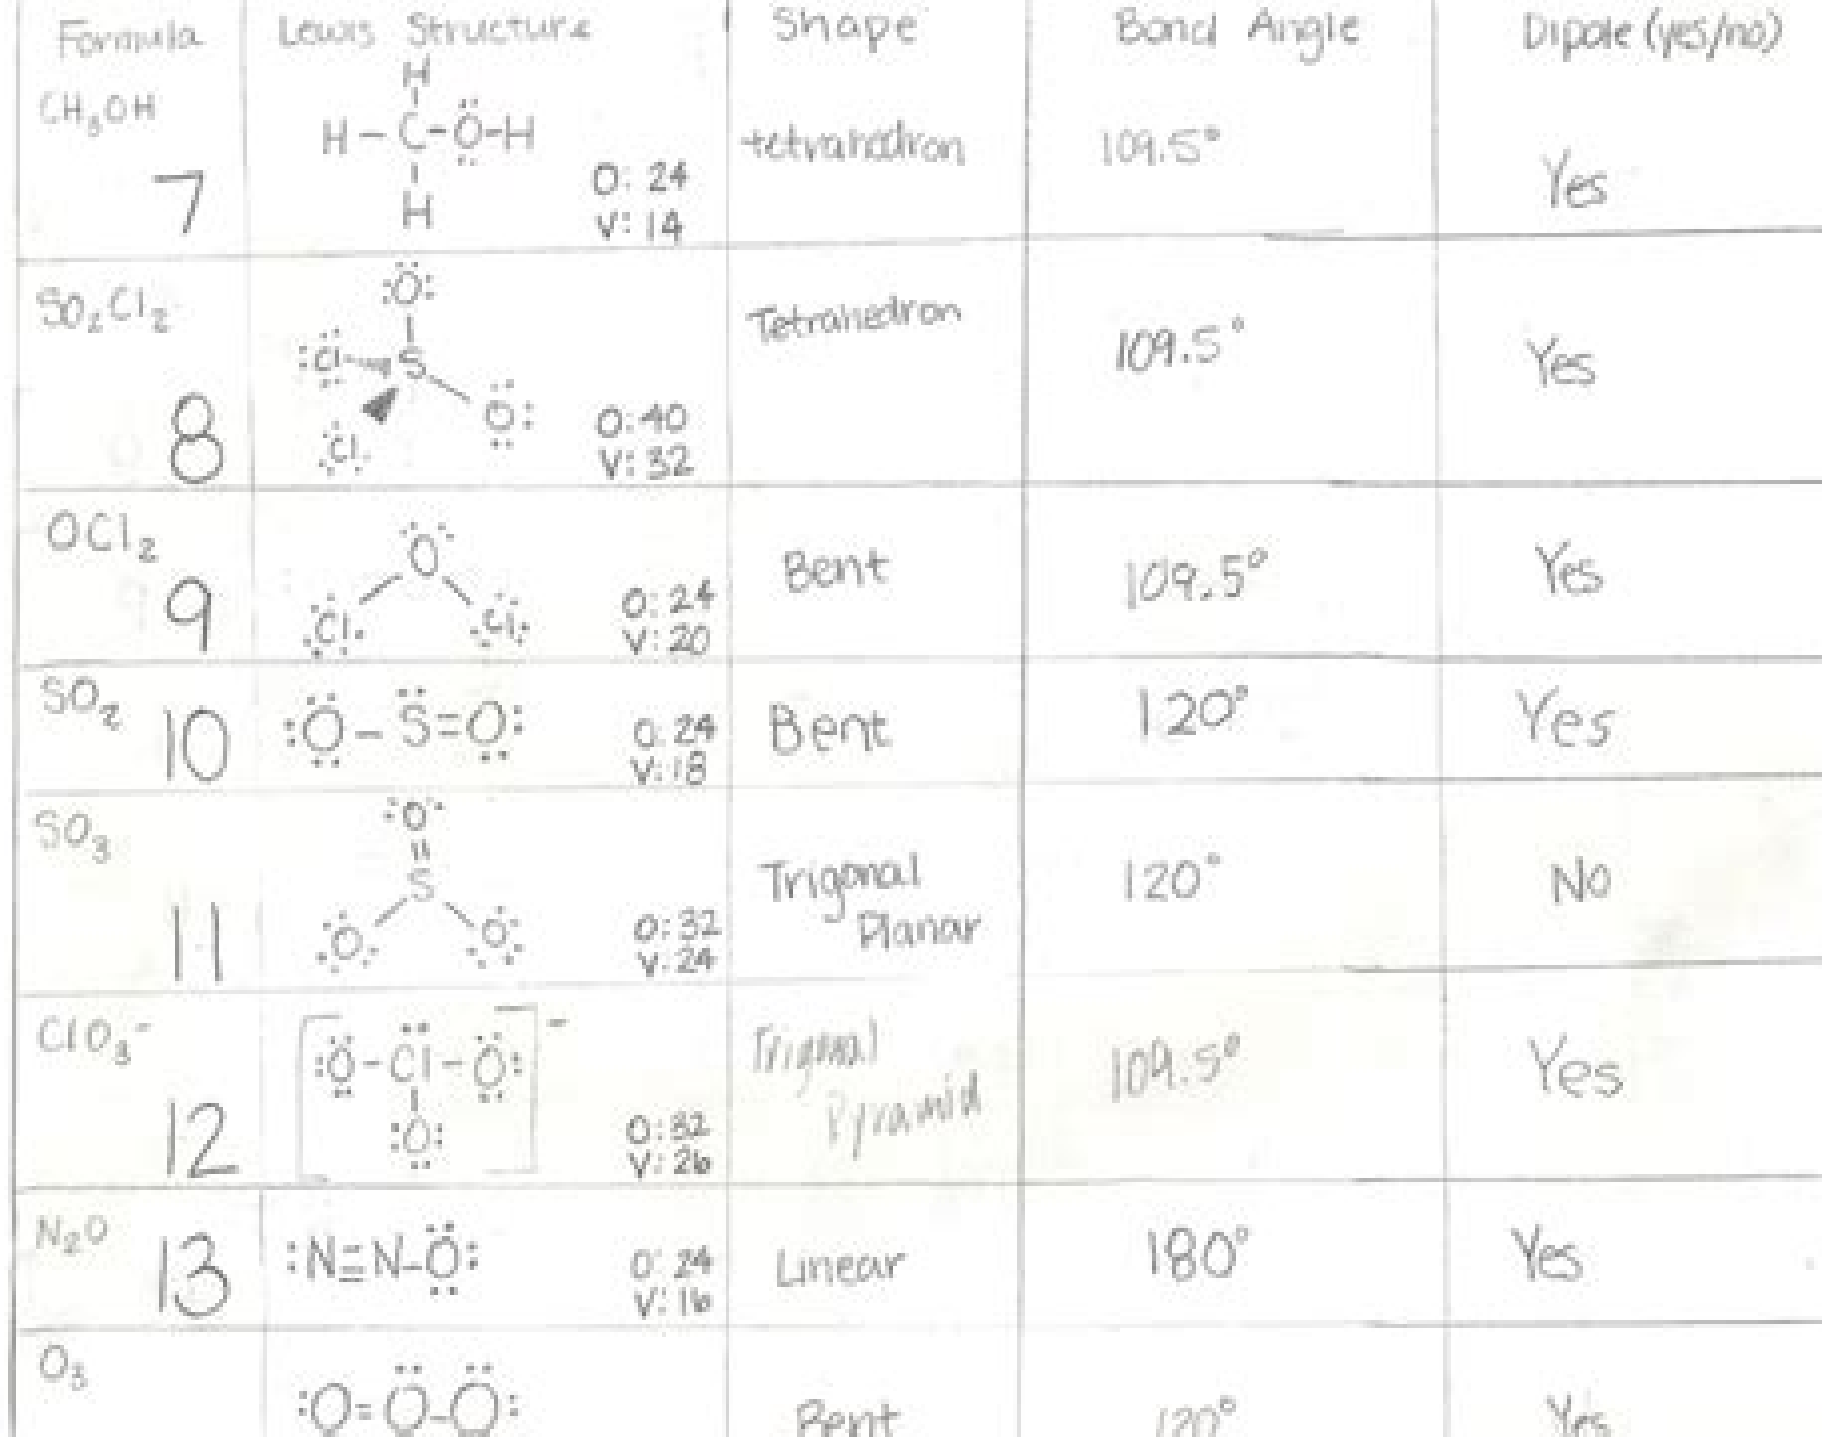 Formula Lewis Structure Shape Bond Angle Dipole (yes/no)
CH₃OH
H
H - C - O - H
H
O: 24
V: 14
tetrahedron
109.5°
Yes
7
SO₂Cl₂
O
Cl S
Cl O
O: 40
V: 32
Tetrahedron
109.5°
Yes
8
OCl₂
O
Cl Cl
O: 24
V: 20
Bent
109.5°
Yes
9
SO₂
10
:O - S = O:
O: 24
V: 18
Bent
120°
Yes
SO₃
O
S
O O
O: 32
V: 24
Trigonal
Planar
120°
No
11
ClO₃⁻
[:O - Cl - O:]⁻
:O:
O: 32
V: 26
Trigonal
Pyramid
109.5°
Yes
12
N₂O
13
:N≡N-O:
O: 24
V: 16
Linear
180°
Yes
O₃
:O=O-O:
Bent
120°
Yes